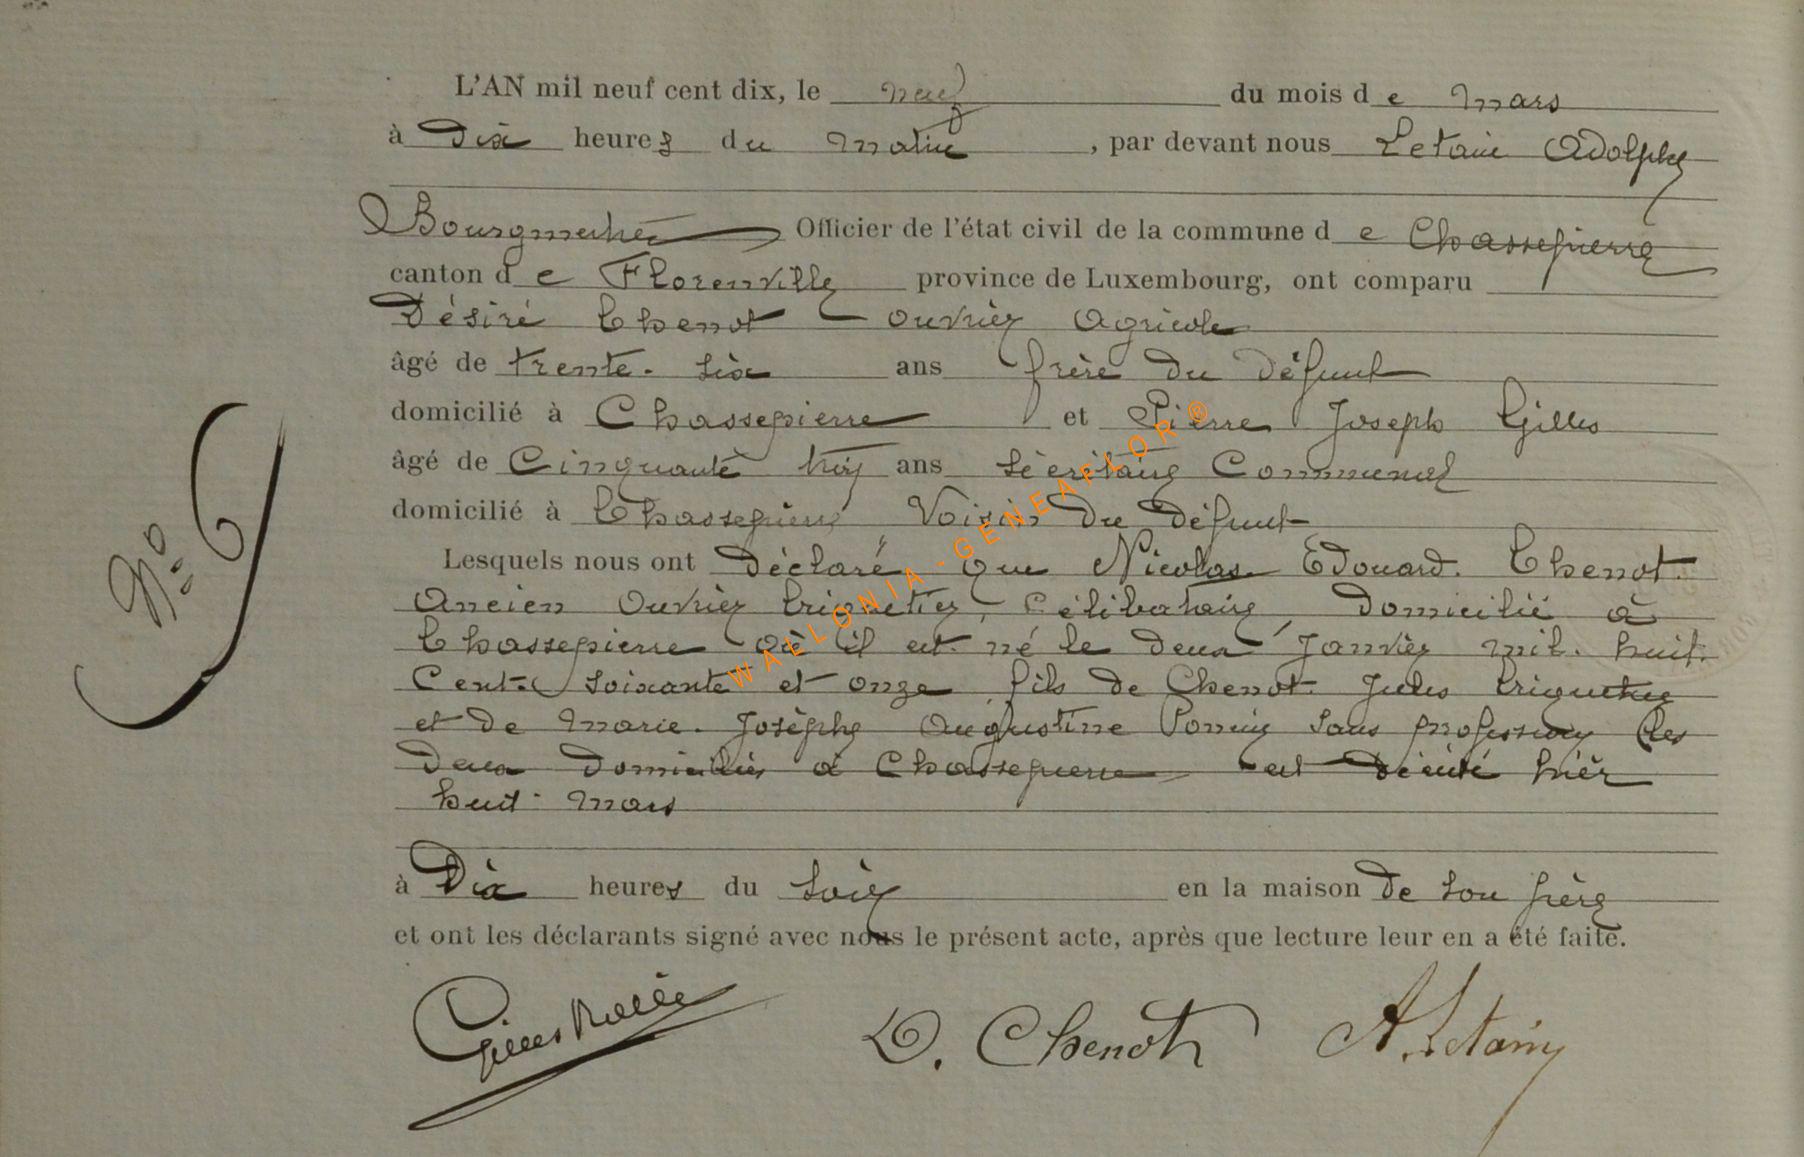 L'AN mil neuf cent dix, le neuf du mois de mars
à Dix heures du matin, par devant nous Letaie Adolphe
Bourgmestre Officier de l'état civil de la commune de Chassepierre
canton de Florenville province de Luxembourg, ont comparu
Désiré Chenot ouvrier agricole
âgé de trente-six ans frère du défunt
domicilié à Chassepierre et Pierre Joseph Gilles
âgé de Cinquante trois ans Secrétaire Communal
domicilié à Chassepierre Voisin du défunt
N° 6
Lesquels nous ont Déclaré que Nicolas Edouard Chenot
Ancien ouvrier briquetier, Célibataire, domicilié à
Chassepierre où il est né le deux Janvier mil huit
Cent soixante et onze fils de Chenot Jules briquetier
et de Marie-Josèphe Augustine sans profession les
deux domiciliés à Chassepierre est décédé hier
huit mars
à Dix heures du soir en la maison de son frère
et ont les déclarants signé avec nous le présent acte, après que lecture leur en a été faite.
Gilles D. Chenot A. Letaie
WALLONIA-GENEAFLOR®